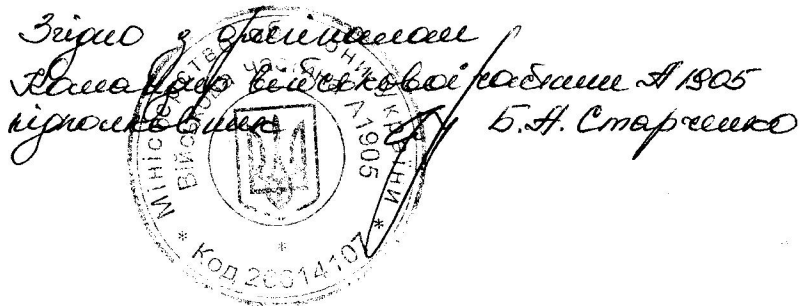 Згідно з оригіналом
Командир військової частини А 1905
підполковник Б.А. Старченко
Міністерство оборони України
Військова частина А1905
* Код 26614107 *